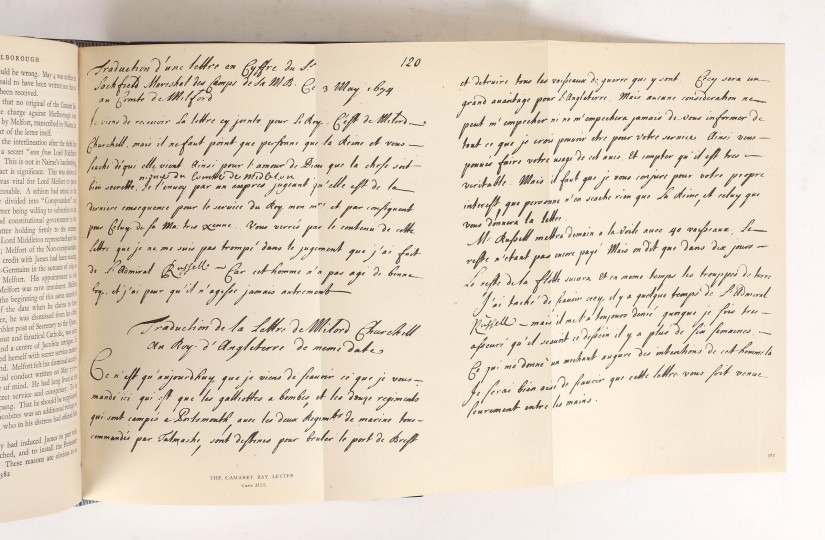 LBOROUGH
uld be wrong. May 4 was
said to have been written
been received.
that no original of the Camaret
e charge against Marlborough
by Melfort, transcribed by Nairne's
of the letter itself.
the interlineation after the
a secret "even from Lord Middleton
This is not in Nairne's
act is significant. This
was vital for Lord Melfort
A schism had
e divided into "Compounders"
ormer being willing to
d constitutional government
tter holding firmly to the
Lord Middleton represented
; Melfort of the Non-
credit with James had been
Germain in the autumn of
Melfort. His appointment
fort was now imminent.
the beginning of this same
f the date when he claims to have
er, he was dismissed from the
mbler post of Secretary to the Queen
out and fanatical Catholic, was
and a centre of Jacobite intrigue. It
ed herself with secret service
Melfort felt his dismissal
cial conduct written on May
e of mine. He had long lived
cret service and conspiracy. To
pang. That he should be supplanted
acobites was an additional
, who in his distress had offered
y had induced James to
ched, and to install the Protestant
These reasons are obvious
382
120
Traduction d'une lettre en Cyffre du Sr
Sackfield Mareshal des Camps de Sa M.B. Ce 3 May 1694
au Comte de Melford
Je viens de recevoir la lettre cy jointe pour le Roy. C'est de Milord
Churchill, mais il ne faut point que personne que la Reine et vous
scache d'qu elle vient. Ainsi pour l'amour de Dieu que la chose soit
bien secrette. Je l'envoy par un expres jugeant qu'elle est de la
derniere consequence pour le service du Roy mon mre et par consequent
pour Celuy de sa Ma: tres xenne. Vous verrez par le contenu de cette
lettre que je ne me suis pas trompé dans le jugement que j'ai fait
de l'Admiral Russell Car cet homme n'a pas agi de bonne
foy, et j'ai peur qu'il n'agisse jamais autrement
Traduction de la Lettre de Milord Churchill
au Roy d'Angleterre de meme date
Ce n'est qu'aujourdhuy que je viens de scavoir ce que je vous
mande ici qui est que les galliottes a bombes et les douze regiments
qui sont campés a Portsmouth, avec les deux Regimts de marine tous
commandés par Talmashe, sont destinés pour bruler le port de Brest
et detruire tous les vaisseaux de guerre qui y sont Cecy sera un
grand auantage pour l'Angleterre. Mais aucune consideration ne
peut m'empecher ni ne m'empechera jamais de vous informer de
tout ce que je crois pouvoir etre pour votre service Ainsi vous
pouvés faire votre usage de cet auis. Et compter qu'il est tres
veritable. Mais il faut que je vous conjure pour votre propre
interest que personne n'en scache rien que la Reine, et celuy qui
vous donnera la lettre.
Mr Russell mettra demain a la voile avec 40 vaisseaux. Le
reste n'etant pas encore payé Mais on dit que dans dix jours
Le reste de la flotte suivra. Et en meme temps les trouppes de terre
J'ai taché de scavoir cecy, il y a quelque temps de l'Admiral
Russell mais il me l'a toujours denié quoyque je sois tres
asseuré qu'il scavoit ce dessein il y a plus de six semaines
Ce qui me donne un mechant augure des intentions de cet homme la
Je serai bien aise de scavoir que cette lettre vous soit venue
seurement entre les mains.
THE CAMARET BAY LETTER